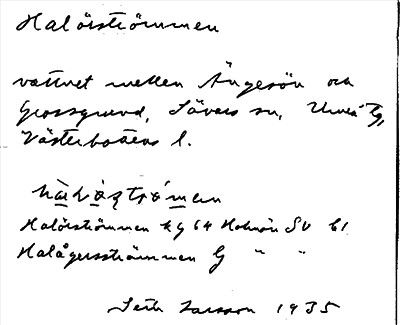 Halörströmmen
vattnet mellan Ängesön och
Grossgrund, Sävars sn, Umeå tg,
Västerbottens l.
Halörströmmen kg 64 Holmön SV bl
Halågersströmmen G " "
Seth Larsson 1935